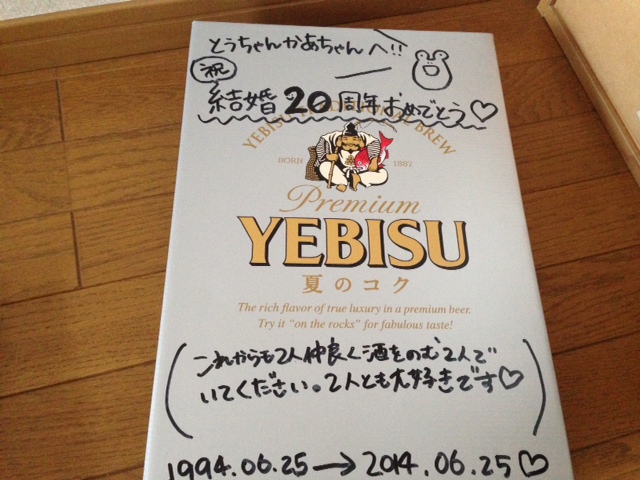 とうちゃんかあちゃんへ!!
祝
結婚20周年おめでとう♡
BREW
BORN 1887
Premium
YEBISU
夏のコク
The rich flavor of true luxury in a premium beer.
Try it "on the rocks" for fabulous taste!
(これからも2人仲良く酒をのむ2人で
いてください。2人とも大好きです♡)
1994.06.25→2014.06.25♡